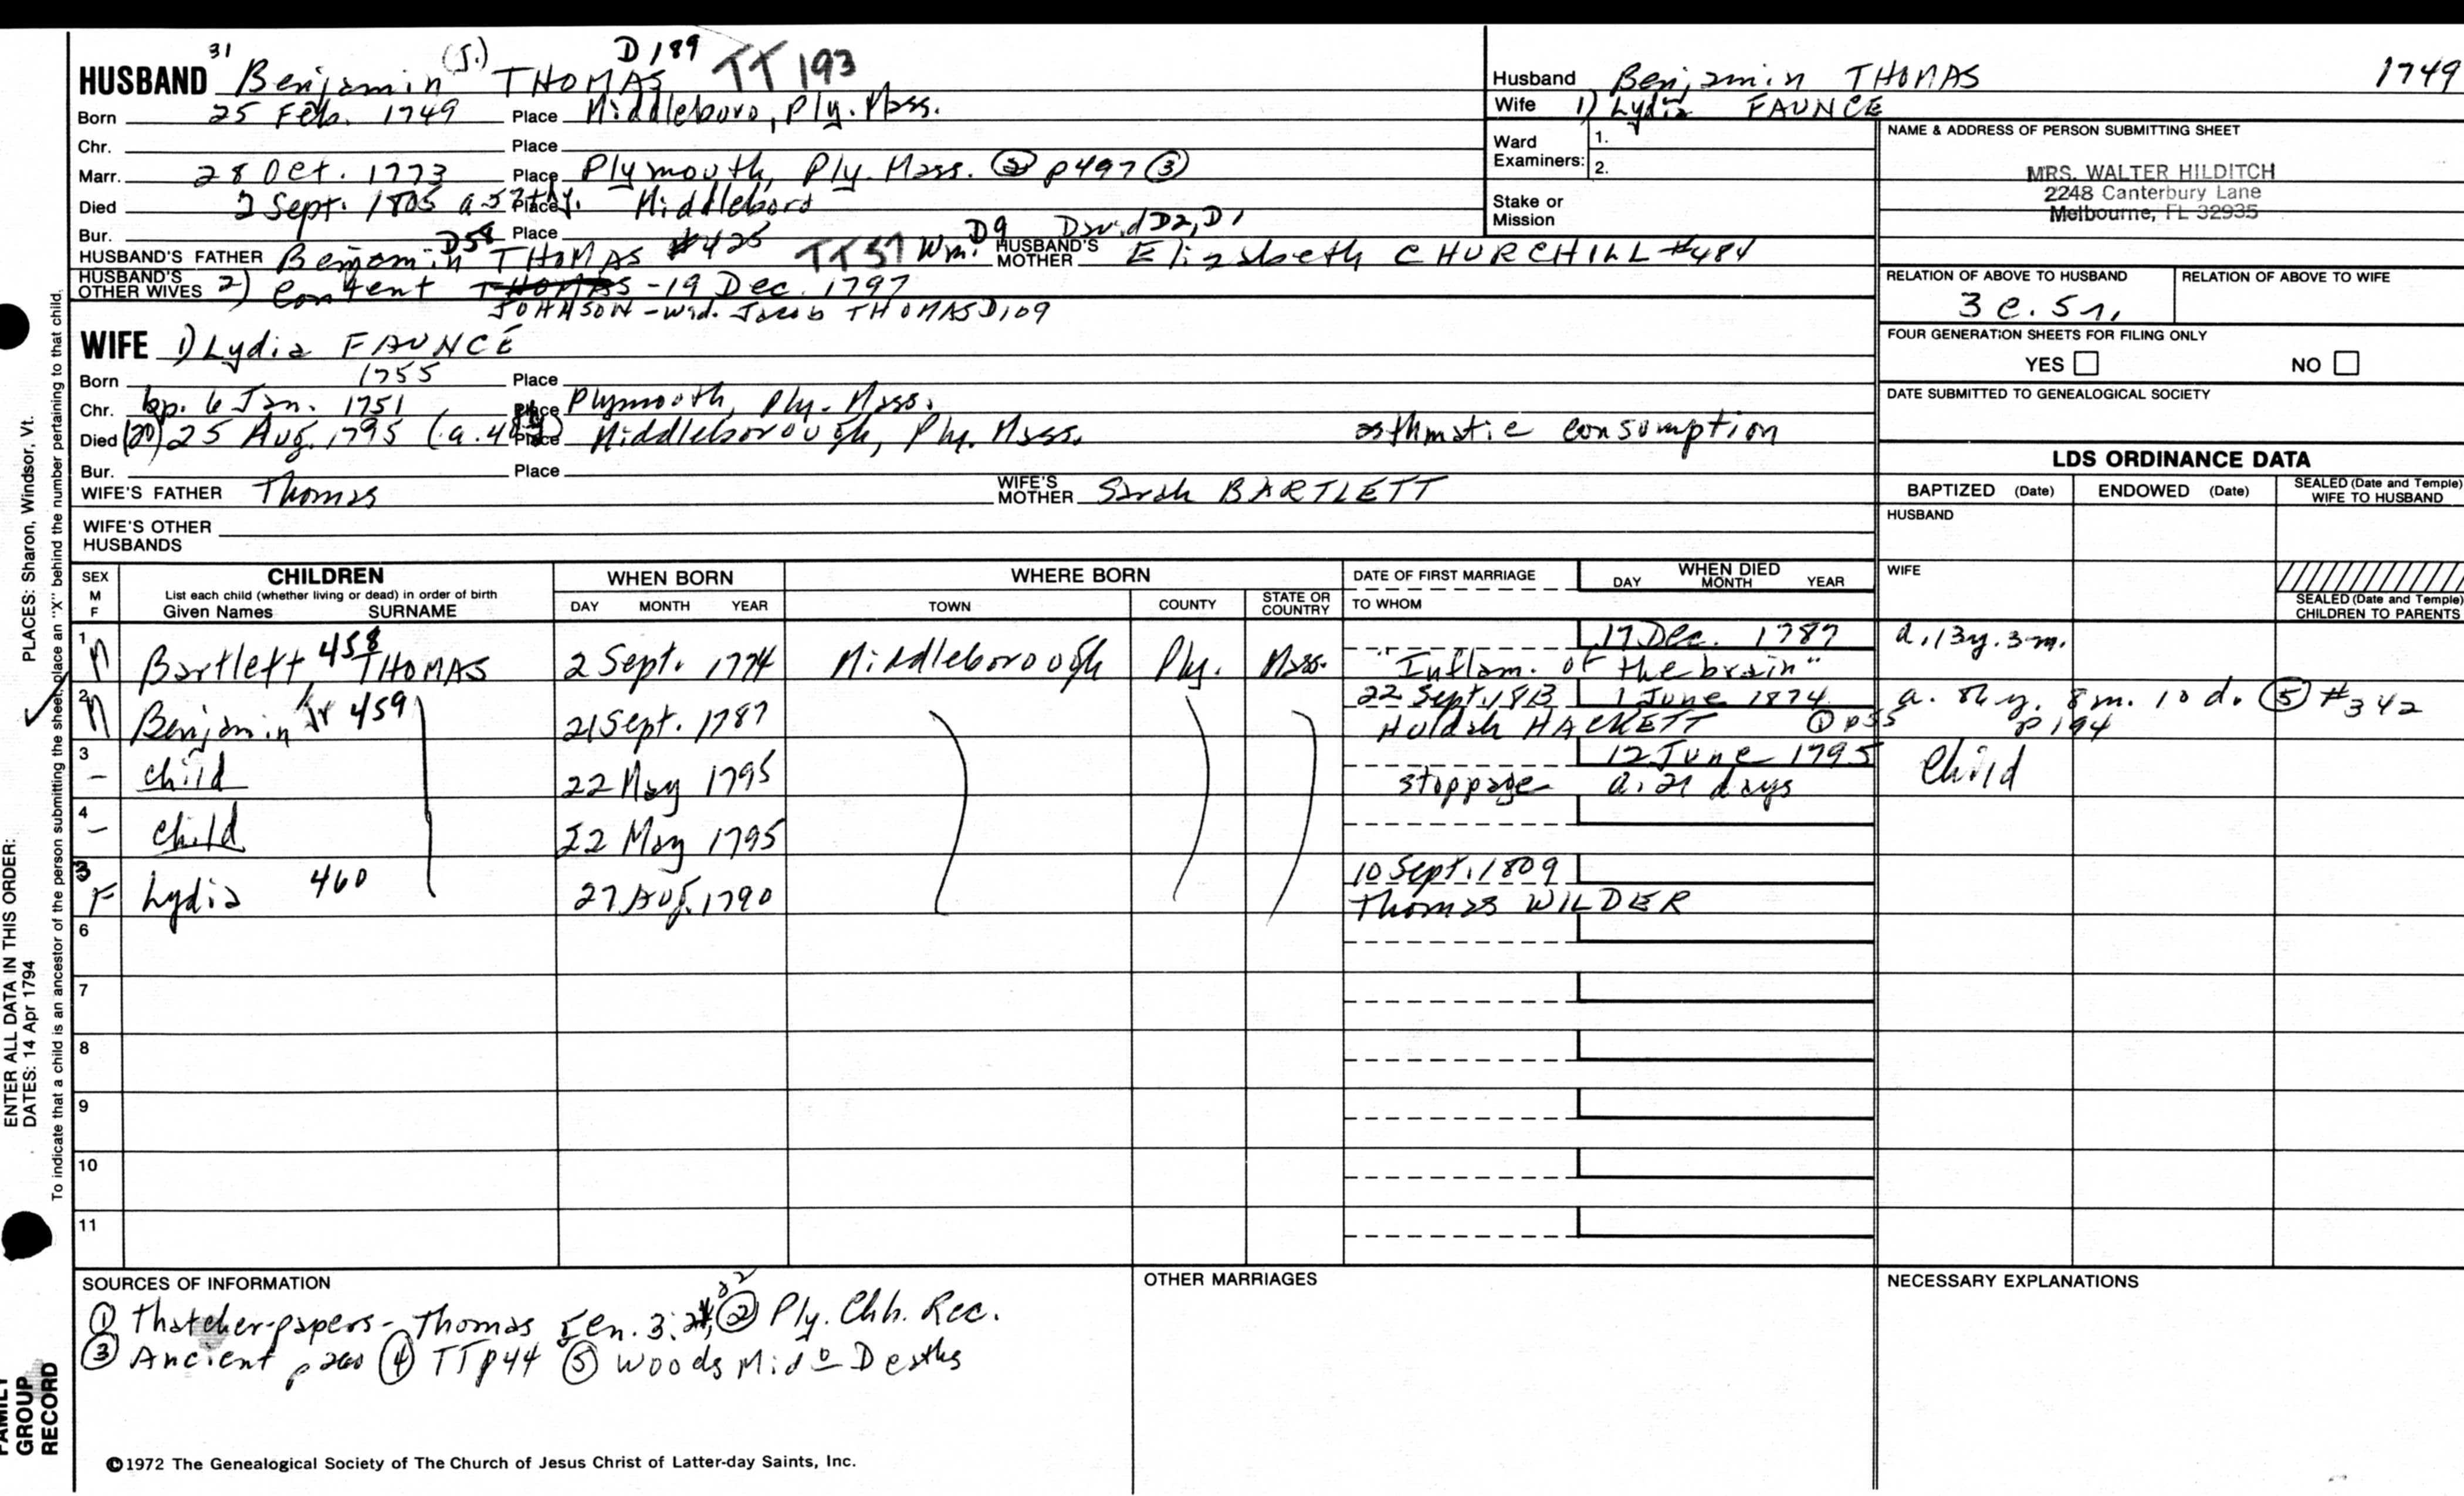 31 (J.) D189 TT 193
HUSBAND Benjamin THOMAS
Born 25 Feb. 1749 Place Middleboro, Ply. Mass.
Chr. Place
Marr. 28 Oct. 1773 Place Plymouth, Ply. Mass. ② p497 ③
Died 2 Sept. 1805 a 57th y. Place Middleboro
Bur. Place D9 David D2, D1
HUSBAND'S FATHER Benjamin D58 THOMAS #425 TT 57 Wm. HUSBAND'S MOTHER Elizabeth CHURCHILL #484
HUSBAND'S OTHER WIVES 2) Content THOMAS - 19 Dec. 1797
JOHNSON - wid. Jacob THOMAS D109
WIFE 1) Lydia FAUNCE
Born 1755 Place
Chr. bp. 6 Jan. 1751 Place Plymouth, Ply. Mass.
Died (20) 25 Aug. 1795 (a. Place Middleborough, Ply. Mass. asthmatic consumption
Bur. Place
WIFE'S FATHER Thomas WIFE'S MOTHER Sarah BARTLETT
WIFE'S OTHER HUSBANDS
Husband Benjamin THOMAS 1749
Wife 1) Lydia FAUNCE
Ward Examiners: 1.
2.
Stake or Mission
NAME & ADDRESS OF PERSON SUBMITTING SHEET
MRS. WALTER HILDITCH
2248 Canterbury Lane
Melbourne, FL 32935
RELATION OF ABOVE TO HUSBAND RELATION OF ABOVE TO WIFE
3 c. 5 r.
FOUR GENERATION SHEETS FOR FILING ONLY
YES NO
DATE SUBMITTED TO GENEALOGICAL SOCIETY
LDS ORDINANCE DATA
BAPTIZED (Date) ENDOWED (Date) SEALED (Date and Temple) WIFE TO HUSBAND
HUSBAND
WIFE
SEALED (Date and Temple) CHILDREN TO PARENTS
SEX M F CHILDREN WHEN BORN WHERE BORN DATE OF FIRST MARRIAGE WHEN DIED
List each child (whether living or dead) in order of birth
Given Names SURNAME DAY MONTH YEAR TOWN COUNTY STATE OR COUNTRY TO WHOM DAY MONTH YEAR
1 M Bartlett 458 THOMAS 2 Sept. 1774 Middleborough Ply. Mass. 17 Dec. 1787 a. 13y. 3m.
"Inflam. of the brain"
2 M Benjamin Jr 459 21 Sept. 1787 22 Sept. 1813 1 June 1874 a. 86 y. 8 m. 10 d. ⑤ #342
Huldah HACKETT ① p55 p 194
3 – child 22 May 1795 12 June 1795 child
stoppage a. 21 days
4 – child 22 May 1795
3 F Lydia 460 27 Aug. 1790 10 Sept. 1809
Thomas WILDER
6
7
8
9
10
11
SOURCES OF INFORMATION
① Thatcher papers - Thomas Gen. 3: 32 ② Ply. Chh. Rec.
③ Ancient p260 ④ TT p44 ⑤ Woods Mido Deaths
OTHER MARRIAGES
NECESSARY EXPLANATIONS
©1972 The Genealogical Society of The Church of Jesus Christ of Latter-day Saints, Inc.
ENTER ALL DATA IN THIS ORDER:
DATES: 14 Apr 1794 PLACES: Sharon, Windsor, Vt.
To indicate that a child is an ancestor of the person submitting the sheet, place an "X" behind the number pertaining to that child.
FAMILY GROUP RECORD